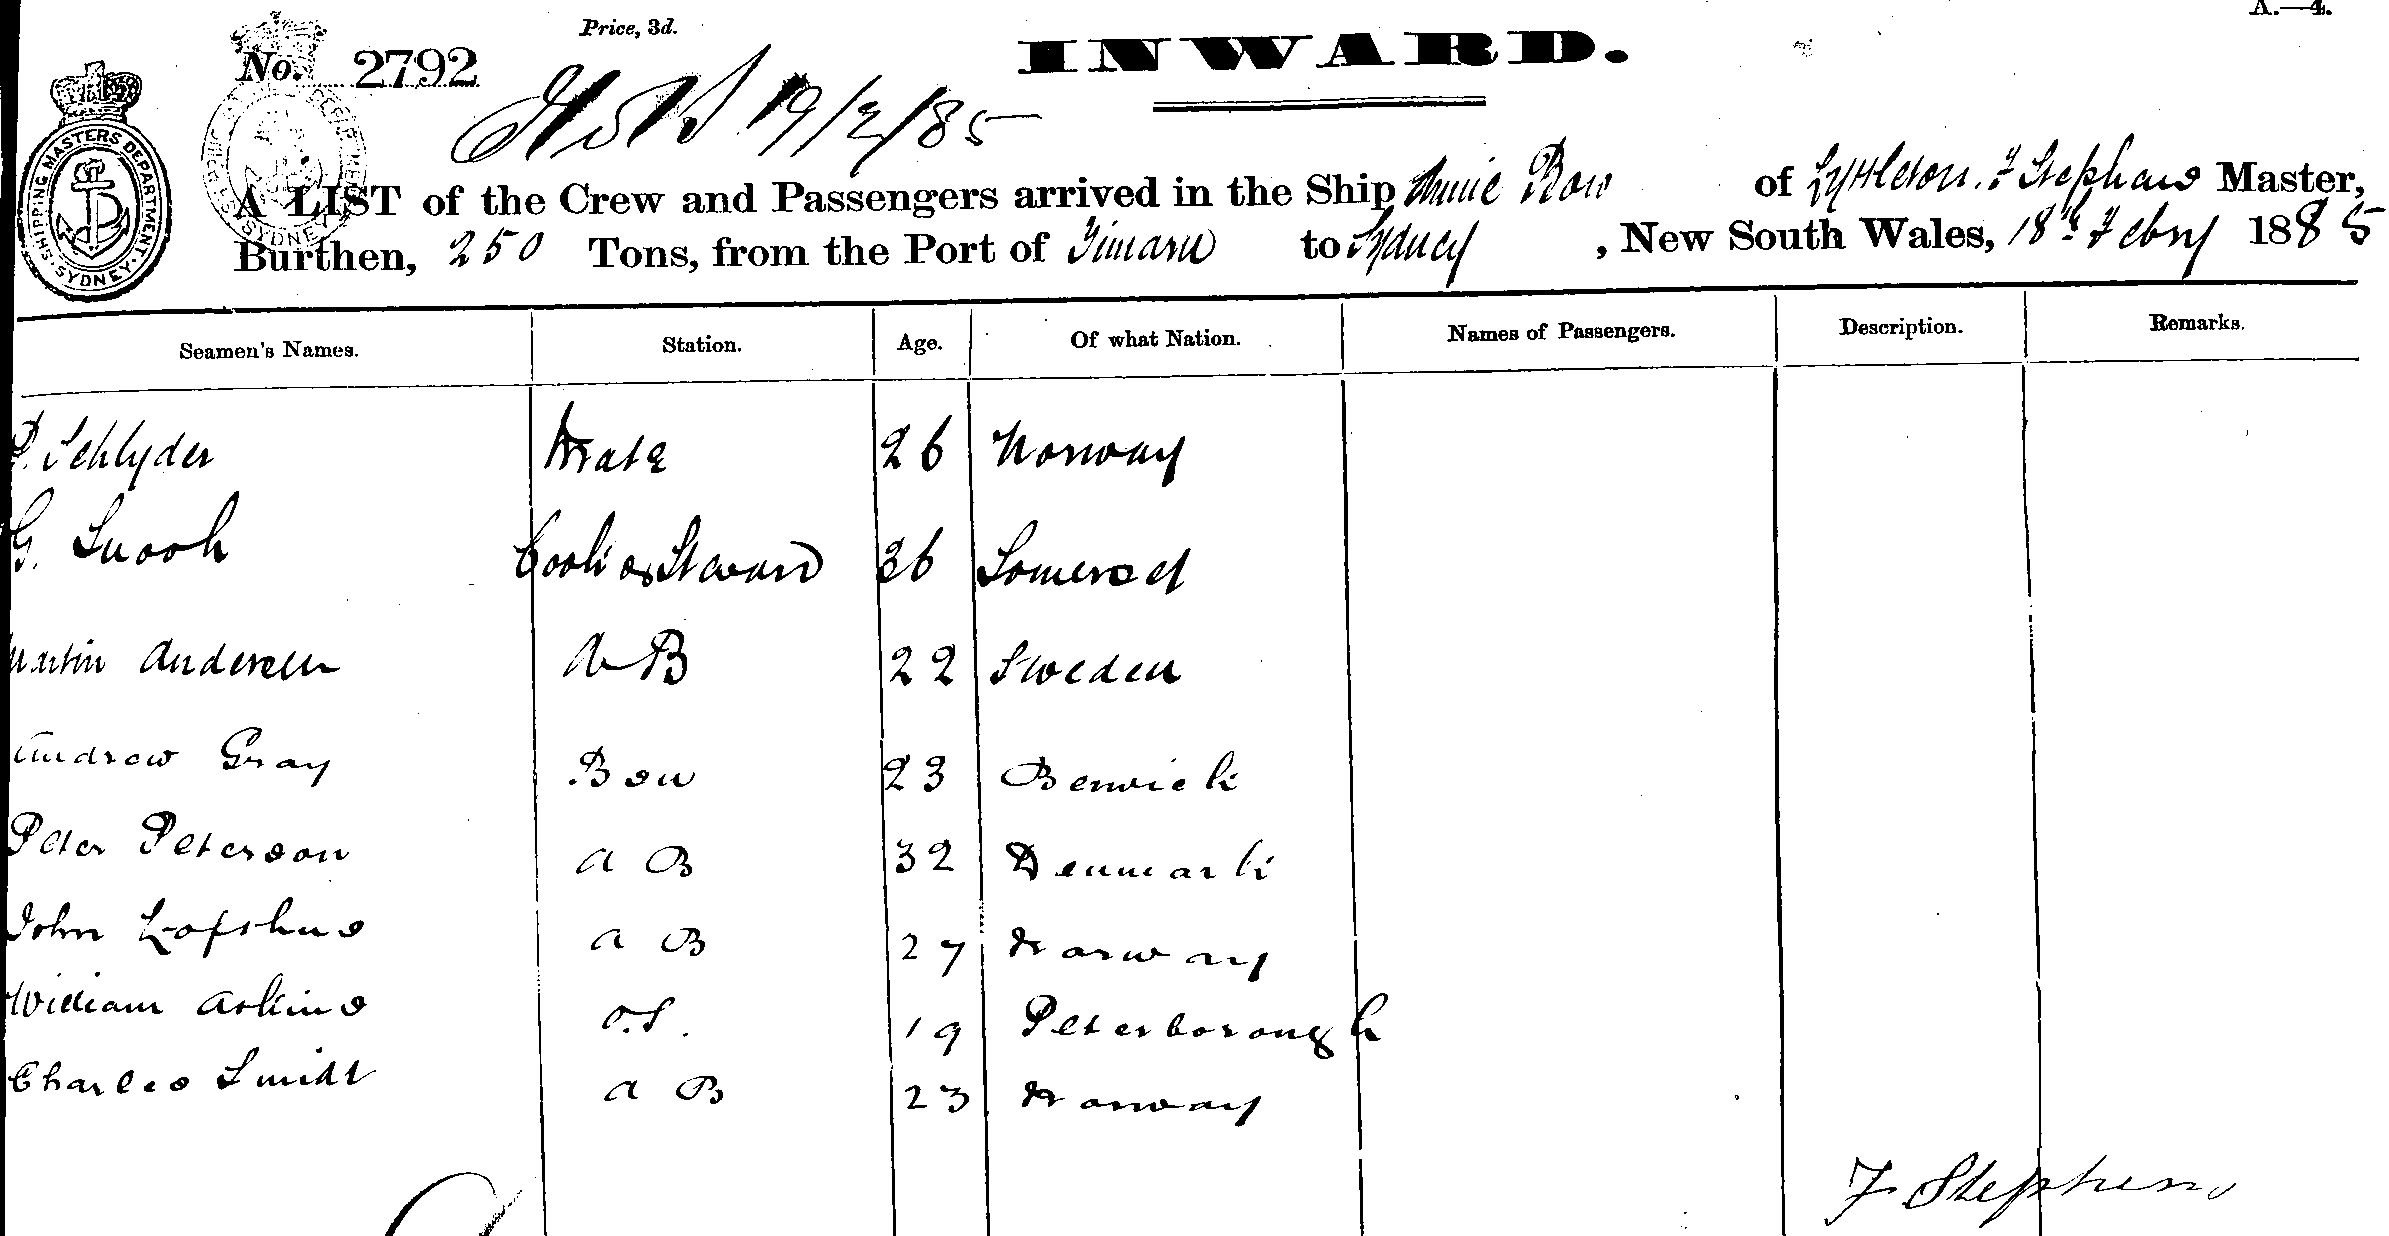 A.—4.
Price, 3d.
INWARD.
No. 2792
19/2/85
A LIST of the Crew and Passengers arrived in the Ship Annie Bow of Lyttleton. F Stephens Master,
Burthen, 250 Tons, from the Port of Timaru to Sydney, New South Wales, 18th Febry 1885
SHIPPING MASTERS DEPARTMENT SYDNEY
Seamen's Names. Station. Age. Of what Nation. Names of Passengers. Description. Remarks.
P. Schlyder Mate 26 Norway
G. Snook Cook & Steward 36 Somerset
Martin Andersen A B 22 Sweden
Andrew Gray Bsn 23 Berwick
Peter Peterson A B 32 Denmark
John Lofshus A B 27 Norway
William Askins O.S. 19 Peterborough
Charles Smidt A B 23 Norway
F Stephens